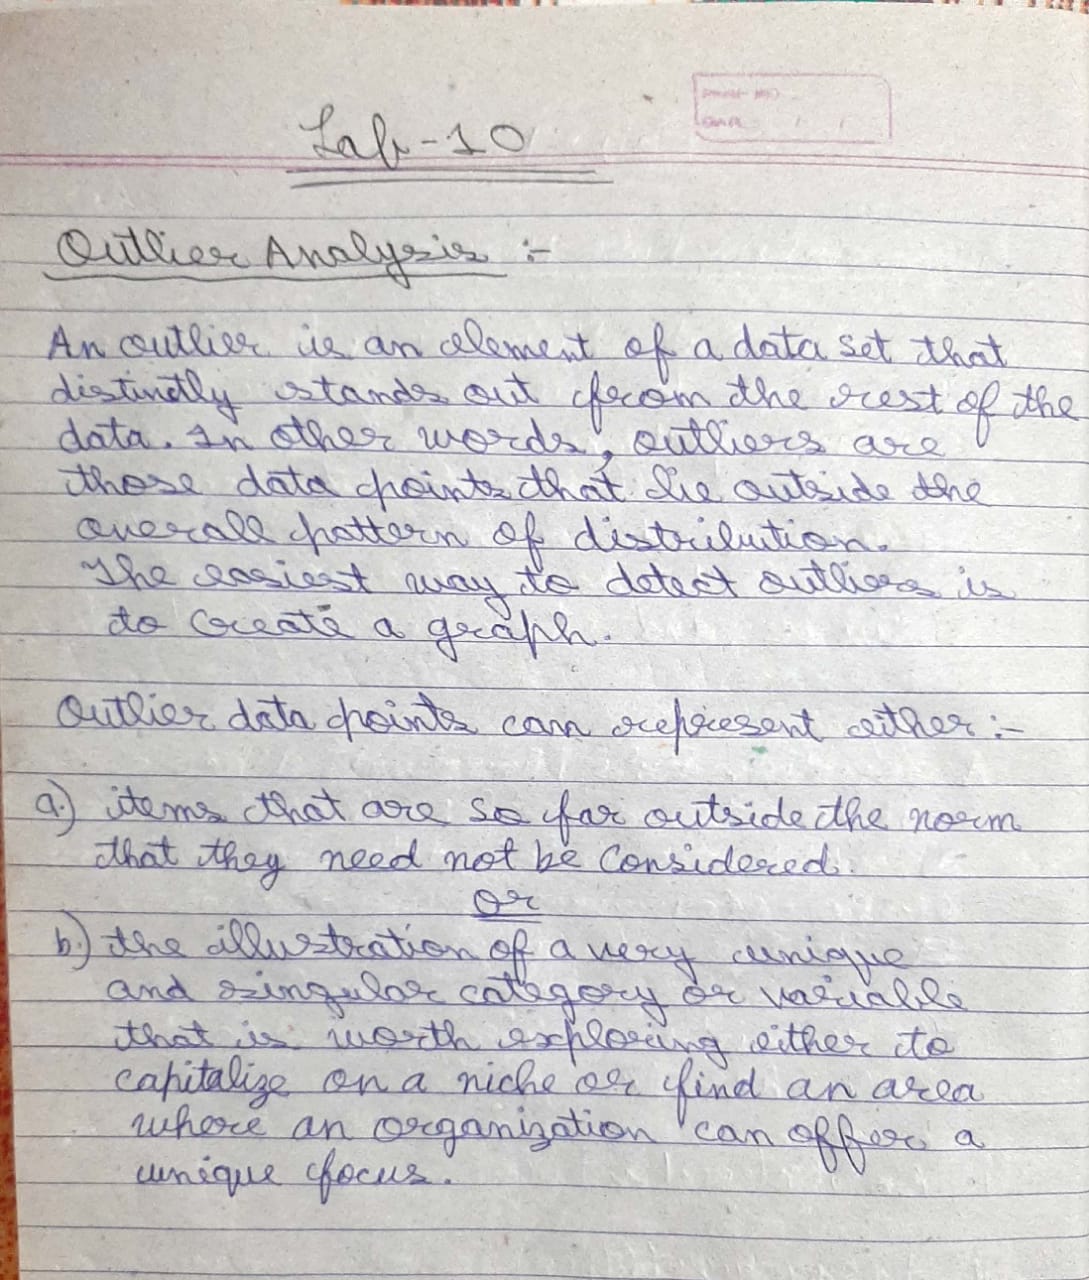 Lab-10
Outlier Analysis :-
An outlier is an element of a data set that
distinctly stands out from the rest of the
data. In other words, outliers are
those data points that lie outside the
overall pattern of distribution.
The easiest way to detect outliers is
to create a graph.
Outlier data points can represent either :-
a.) items that are so far outside the norm
that they need not be considered.
or
b.) the illustration of a very unique
and singular category or variable
that is worth exploring either to
capitalize on a niche or find an area
where an organization can offer a
unique focus.